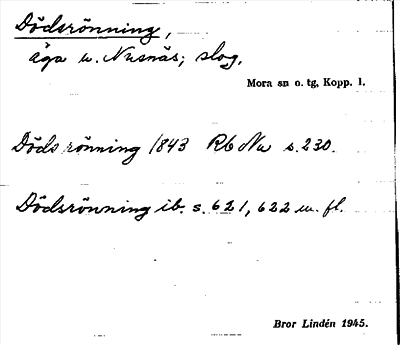 Dödsrönning,
äga u. Nusnäs; slog.
Mora sn o. tg, Kopp. l.
Döds rönning 1843 Rb Nu s. 230.
Dödsrönning ib. s. 621, 622 m. fl.
Bror Lindén 1945.